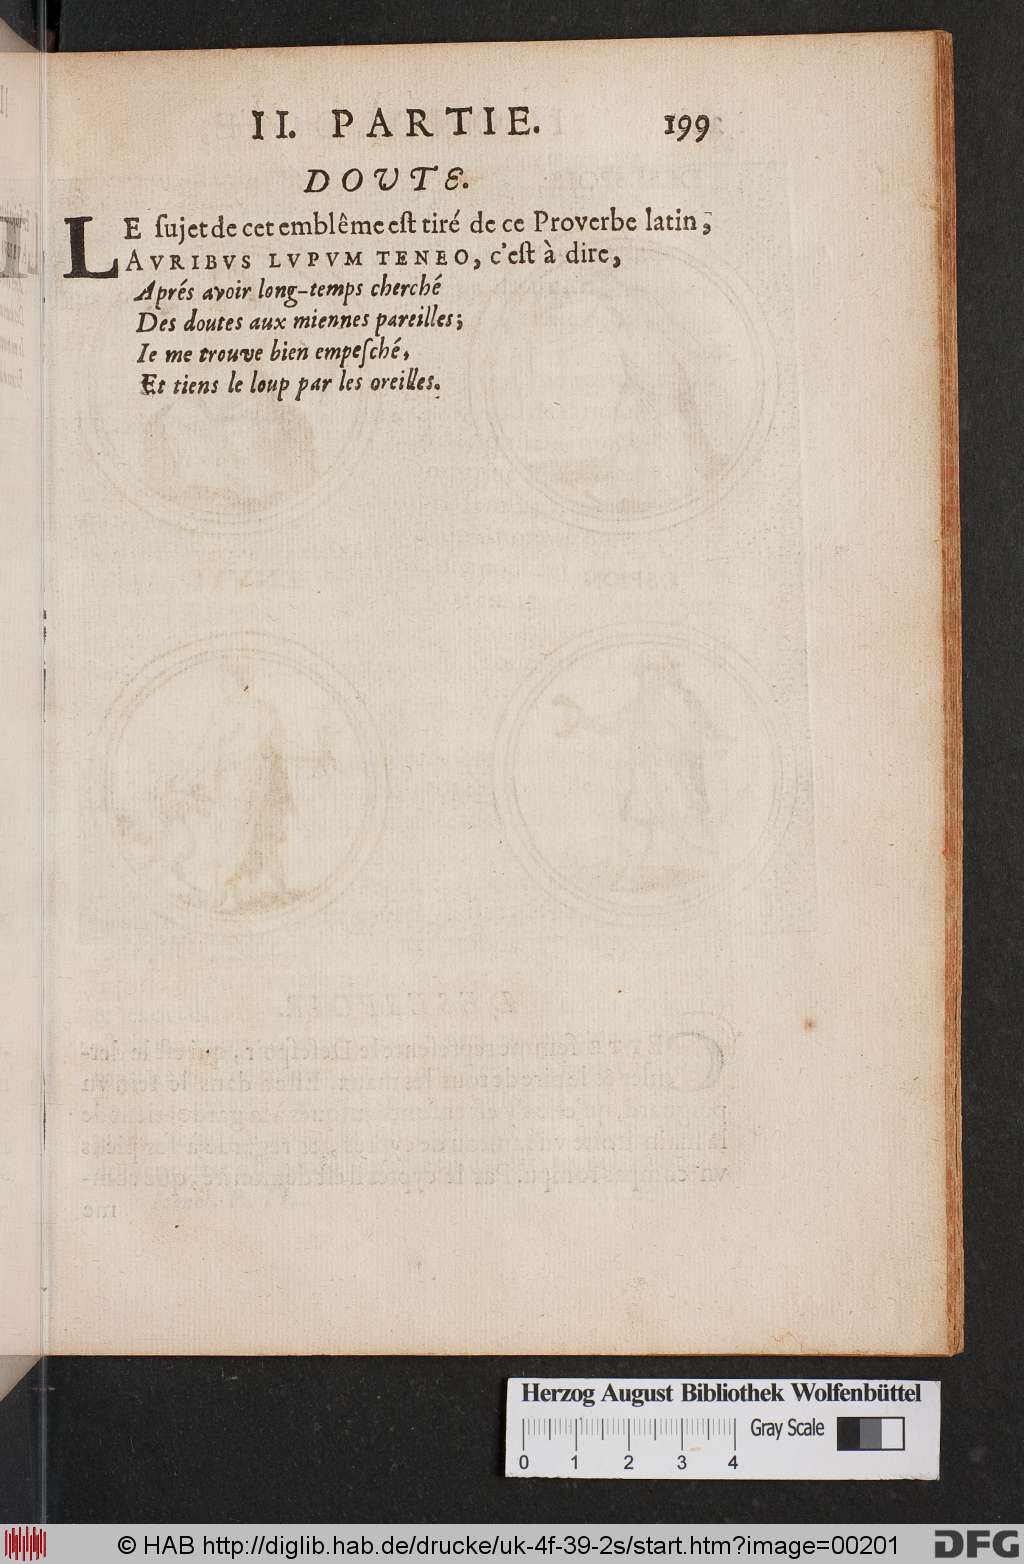 II. PARTIE. 199
DOVTE.
LE ſujet de cet emblême eſt tiré de ce Proverbe latin,
AVRIBVS LVPVM TENEO, c'eſt à dire,
Aprés avoir long-temps cherché
Des doutes aux miennes pareilles;
Ie me trouve bien empeſché,
Et tiens le loup par les oreilles.
Herzog August Bibliothek Wolfenbüttel
Gray Scale
0 1 2 3 4
© HAB http://diglib.hab.de/drucke/uk-4f-39-2s/start.htm?image=00201
DFG